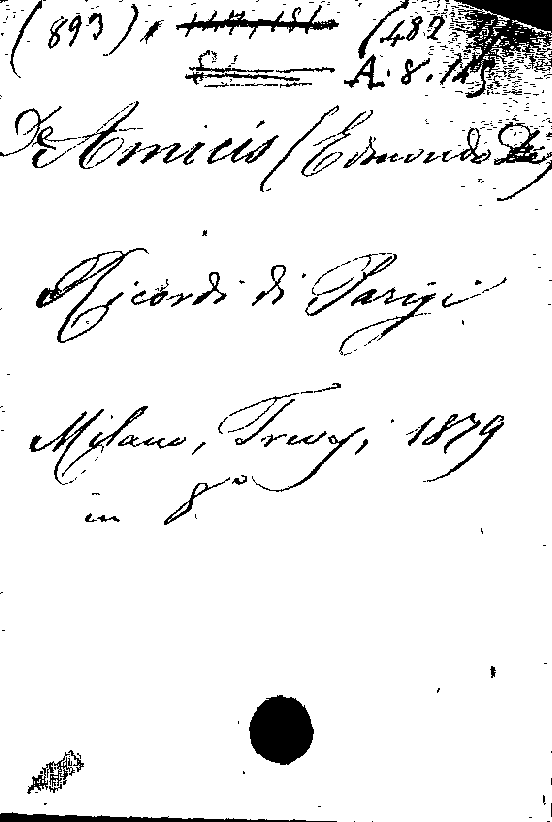 (893)
A. 8. 145
De Amicis (Edmondo
Ricordi di Parigi
Milano, Treves, 1879
in 8°